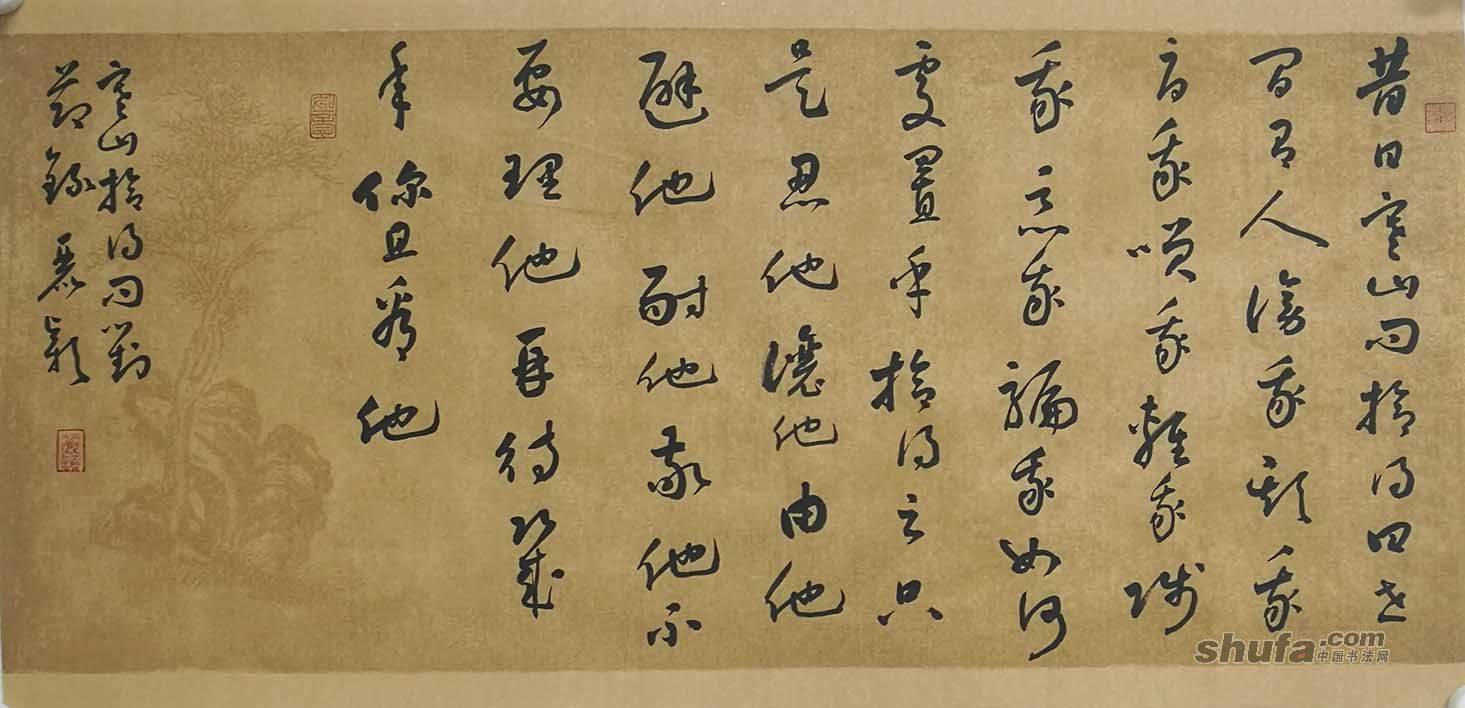 昔日寒山問拾得曰世
間有人謗我欺我
辱我笑我輕我賤
我惡我騙我如何
處置乎拾得云只
是忍他讓他由他
避他耐他敬他不
要理他再待幾
年你且看他
寒山拾得問對
節錄 麗穎
shufa.com
中国书法网